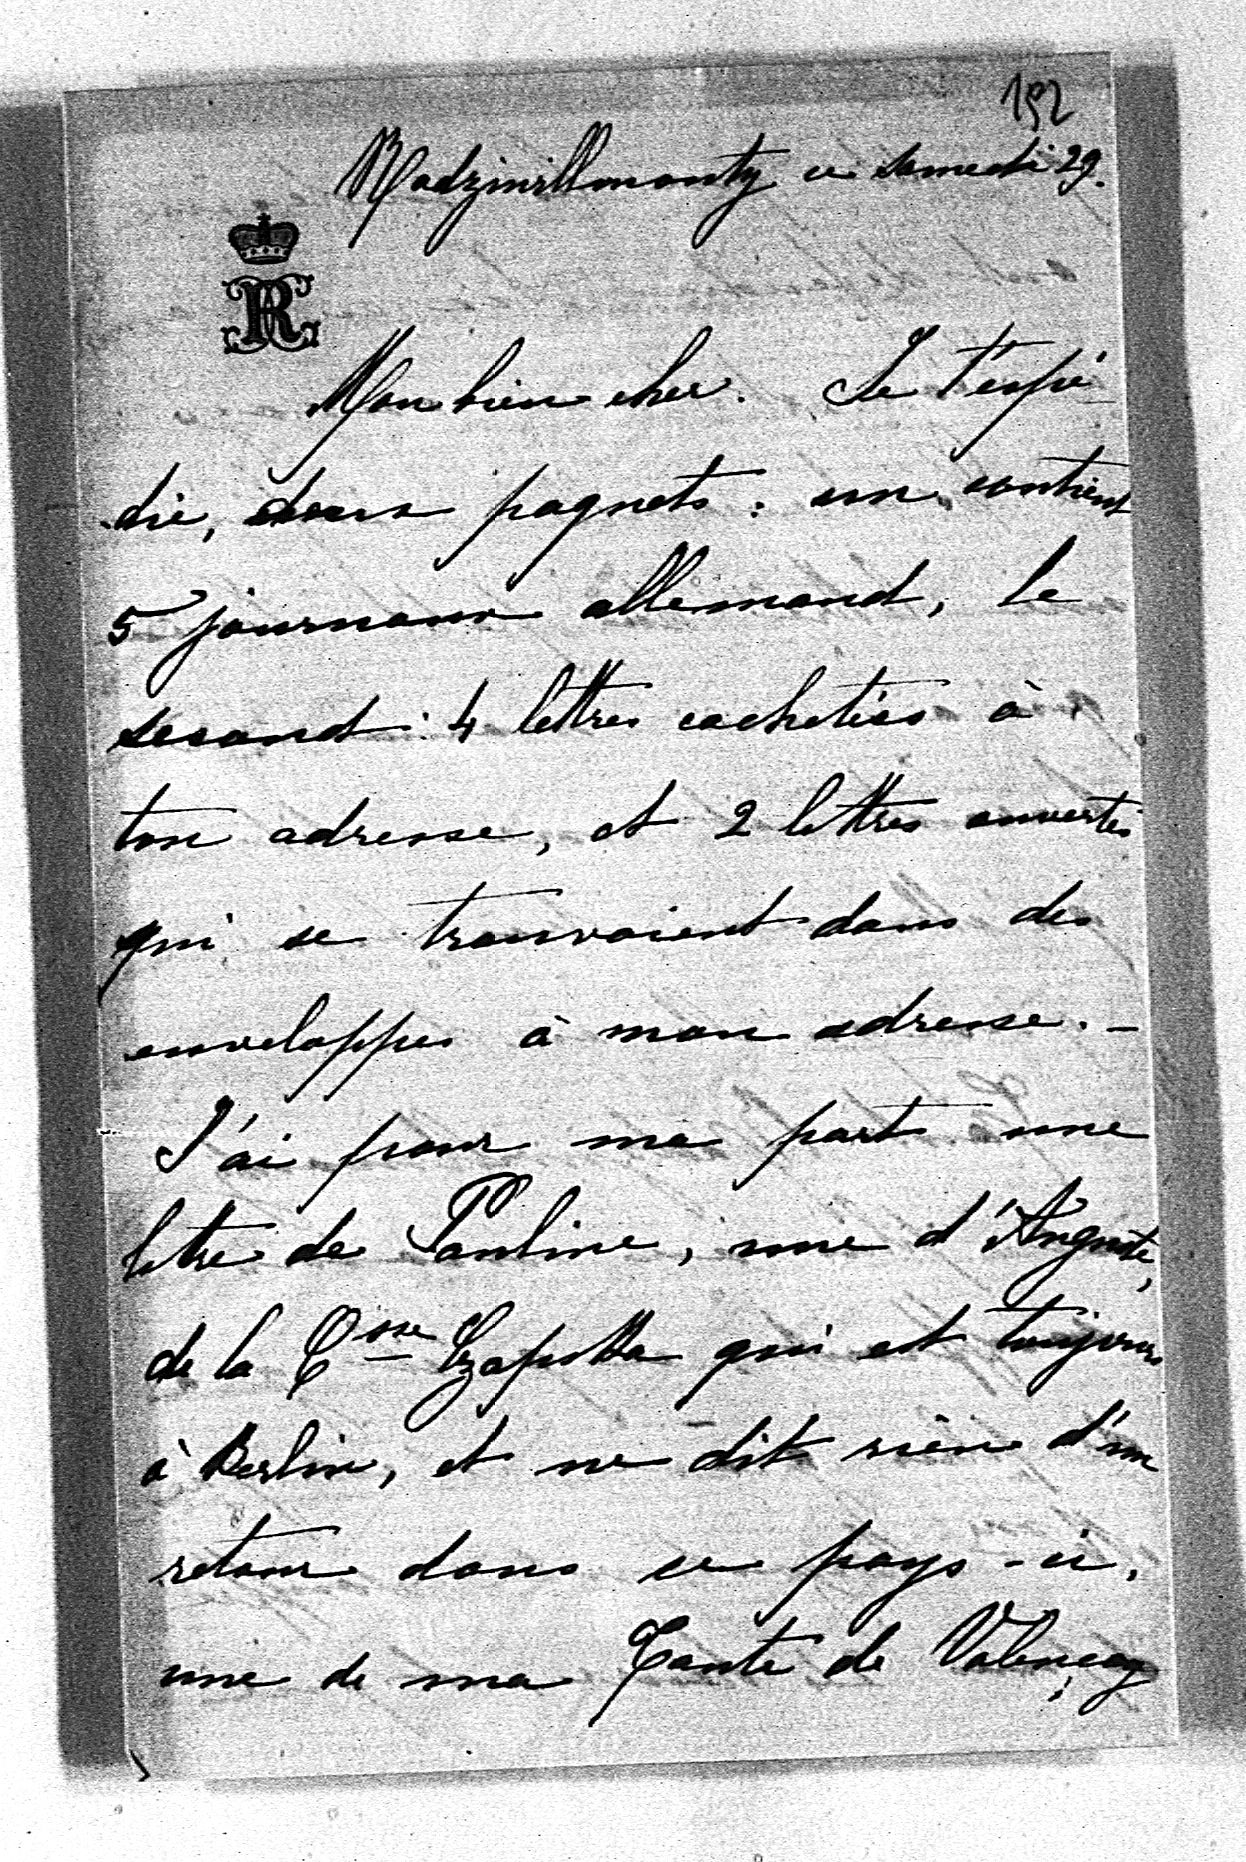 192
Radziwillmonty ce samedi 29.
R
Mon bien cher. Je t'éxpé-
die, deux paquets : un contient
5 journaux allemand, le
second : 4 lettres cachetées à
ton adresse, et 2 lettres ouvertes
qui se trouvaient dans des
enveloppes à mon adresse. –
J'ai pour ma part une
lettre de Pauline, une d'Auguste,
de la Csse Czapska qui est toujours
à Berlin, et ne dit rien d'un
retour dans ce pays-ci,
une de ma Tante de Valençay